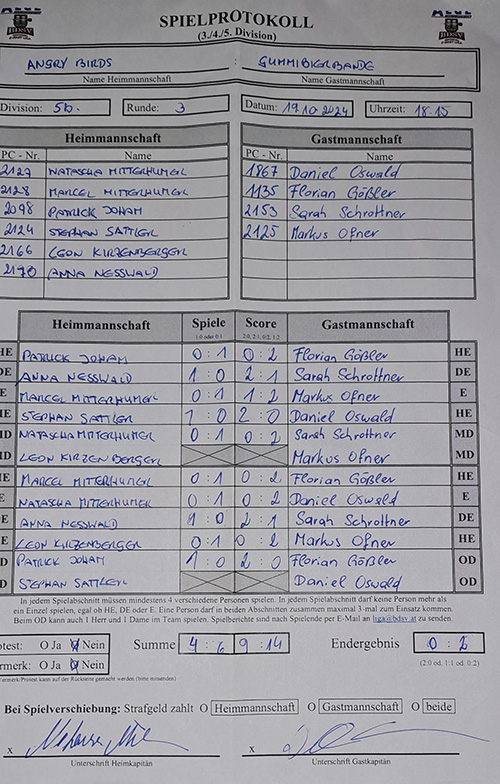 SPIELPROTOKOLL
(3./4./5. Division)
ANGRY BIRDS : GUMMIBÄRBANDE
Name Heimmannschaft Name Gastmannschaft
Division: 5b. Runde: 3 Datum: 19.10.2024 Uhrzeit: 18.15
Heimmannschaft Gastmannschaft
PC - Nr. Name PC - Nr. Name
2129 NATASCHA MITTERHUMER 1867 Daniel Oswald
2128 MARCEL MITTERHUMER 1135 Florian Gößler
2098 PATRICK DOHAM 2153 Sarah Schrottner
2124 STEPHAN SATTLER 2125 Markus Ofner
2166 LEON KIRZENBERGER
2170 ANNA NESSWALD
Heimmannschaft Spiele Score Gastmannschaft
1:0 oder 0:1 2:0, 2:1, 0:2, 1:2
HE PATRICK DOHAM 0 : 1 0 : 2 Florian Gößler HE
DE ANNA NESSWALD 1 : 0 2 : 1 Sarah Schrottner DE
E MARCEL MITTERHUMER 0 : 1 1 : 2 Markus Ofner E
HE STEPHAN SATTLER 1 : 0 2 : 0 Daniel Oswald HE
MD NATASCHA MITTERHUMER 0 : 1 0 : 2 Sarah Schrottner MD
MD LEON KIRZENBERGER Markus Ofner MD
HE MARCEL MITTERHUMER 0 : 1 0 : 2 Florian Gößler HE
E NATASCHA MITTERHUMER 0 : 1 0 : 2 Daniel Oswald E
DE ANNA NESSWALD 1 : 0 2 : 1 Sarah Schrottner DE
HE LEON KIRZENBERGER 0 : 1 0 : 2 Markus Ofner HE
D PATRICK DOHAM 1 : 0 2 : 0 Florian Gößler OD
D STEPHAN SATTLER Daniel Oswald OD
In jedem Spielabschnitt müssen mindestens 4 verschiedene Personen spielen. In jedem Spielabschnitt darf keine Person mehr als
ein Einzel spielen, egal ob HE, DE oder E. Eine Person darf in beiden Abschnitten zusammen maximal 3-mal zum Einsatz kommen.
Beim OD kann auch 1 Herr und 1 Dame im Team spielen. Spielberichte sind nach Spielende per E-Mail an liga@bdsv.at zu senden.
test: O Ja O Nein Summe 4 : 6 9 : 14 Endergebnis 0 : 2
ermerk: O Ja O Nein (2:0 od. 1:1 od. 0:2)
ermerk/Protest kann auf der Rückseite gemacht werden (bitte mitsenden)
Bei Spielverschiebung: Strafgeld zahlt O Heimmannschaft O Gastmannschaft O beide
x x
Unterschrift Heimkapitän Unterschrift Gastkapitän